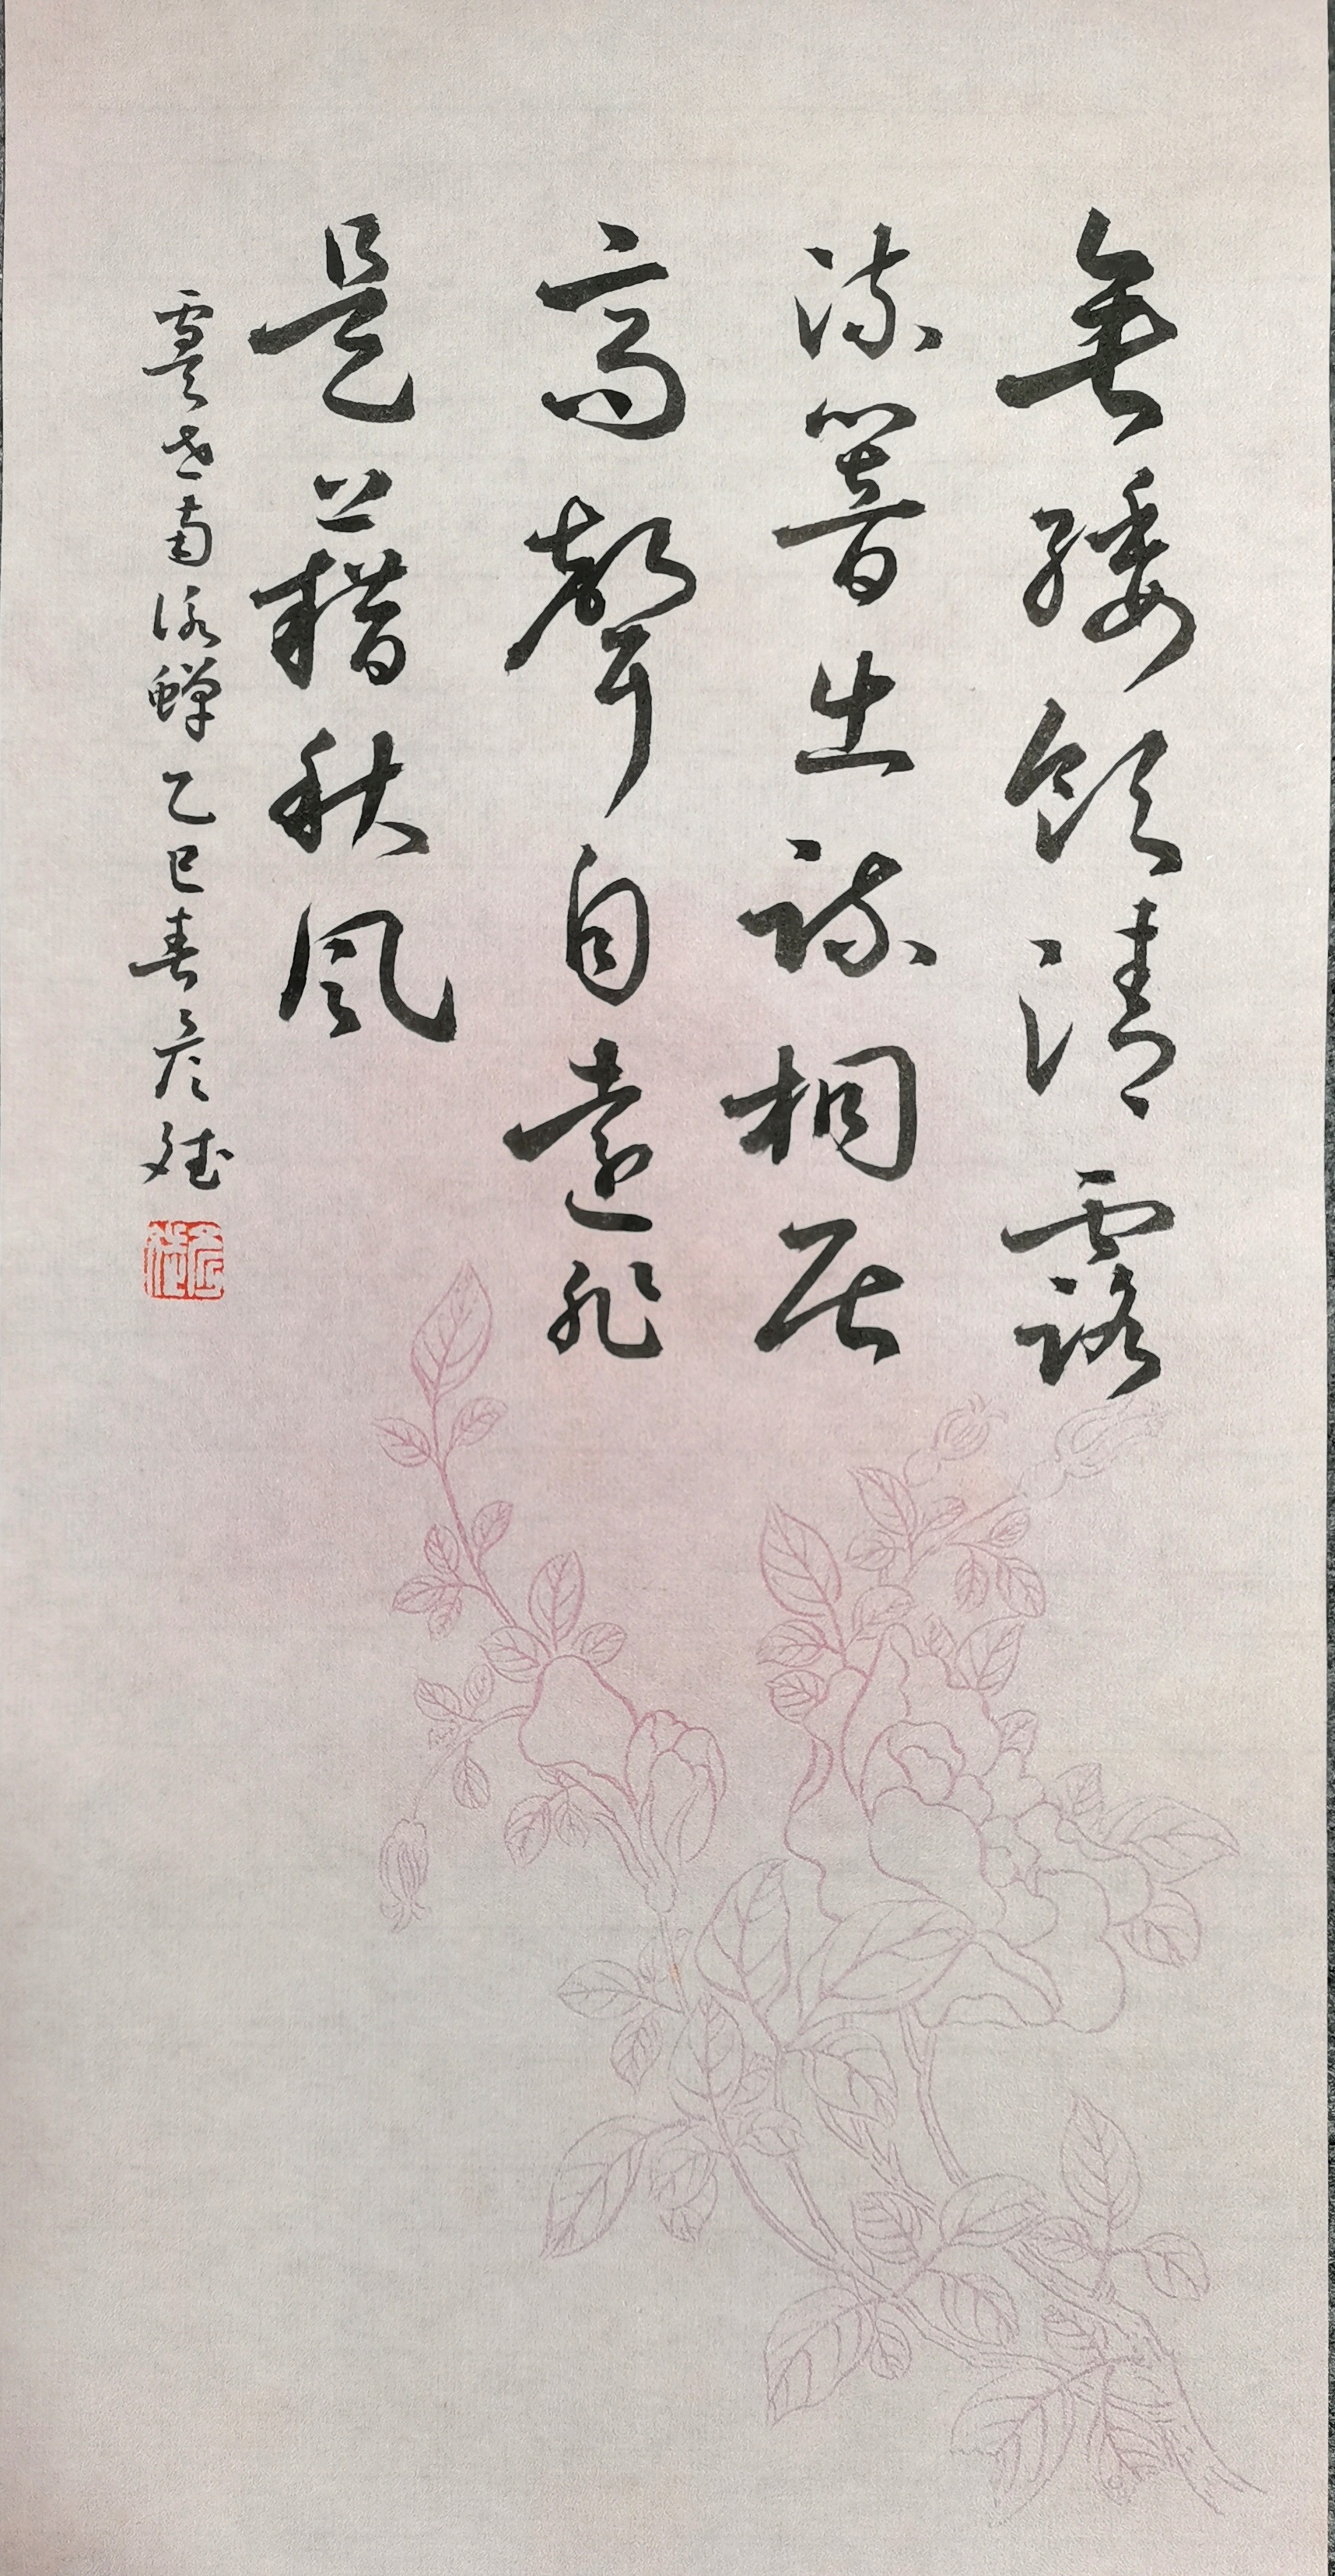 垂緌飲清露
流響出疏桐居
高聲自遠非
是藉秋風
虞世南詠蟬乙巳春詹斌